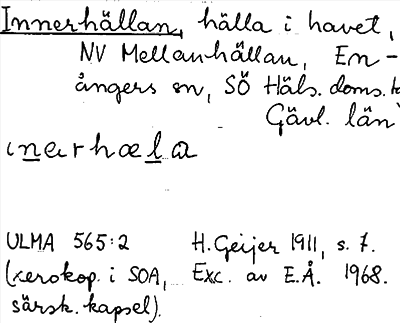 Innerhällan, hälla i havet,
NV Mellanhällan, En-
ångers sn, SÖ Häls. doms.
Gävl. län
ınərhæla
ULMA 565:2 H. Geijer 1911, s. 7.
(xerokop. i SOA, Exc. av E.Å. 1968.
särsk. kapsel).